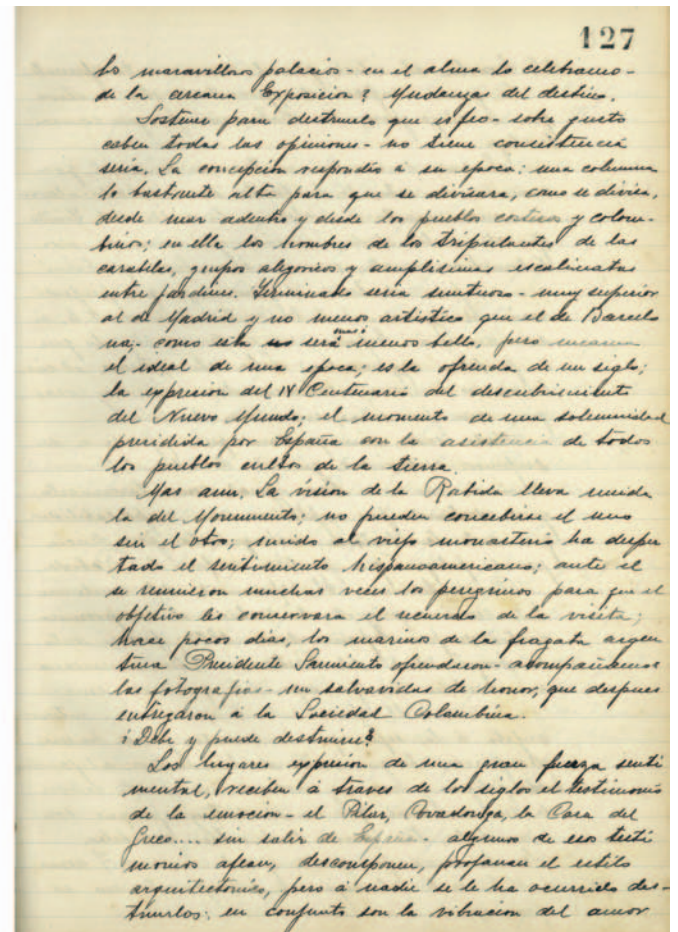 127
los maravillosos palacios - en el alma lo celebramo -
de la cercana Exposicion? Mudanzas del destino.
Sostener para destruirlo que es feo - sobre gusto
caben todas las opiniones - no tiene consistencia
seria. La concepción respondió a su epoca: una columna
lo bastante alta para que se divisara, como se divisa,
desde mar adentro y desde los pueblos costeros y colom-
binos; en ella los nombres de los tripulantes de las
carabelas, grupos alegoricos y amplisimas escalinatas
entre jardines. Terminado seria suntuoso - muy superior
al de Madrid y no menos artistico que el de Barcelo
na; - como está será mas ó menos bello, pero encarna
el ideal de una epoca; es la ofrenda de un siglo;
la expresion del IV Centenario del descubrimiento
del Nuevo Mundo; el momento de una solemnidad
presidida por España con la asistencia de todos
los pueblos cultos de la tierra.
Mas aun. La visión de la Rabida lleva unida
la del Monumento; no pueden concebirse el uno
sin el otro; unido al viejo monasterio ha desper
tado el sentimiento hispanoamericano; ante el
se reunieron muchas veces los peregrinos para que el
objetivo les conservara el recuerdo de la visita;
hace pocos dias, los marinos de la fragata argen
tina Presidente Sarmiento ofrendaron - acompañamos
las fotografias - un salvavidas de honor, que despues
entregaron á la Sociedad Colombina.
¿Debe y puede destruirse?
Los lugares expresion de una gran fuerza senti
mental, reciben á traves de los siglos el testimonio
de la emocion - el Pilar, Covadonga, la Casa del
Greco.... sin salir de España - algunos de esos testi
monios afean, descomponen, profanan el estilo
arquitectonico, pero á nadie se le ha ocurrido des-
truirlos: en conjunto son la vibracion del amor